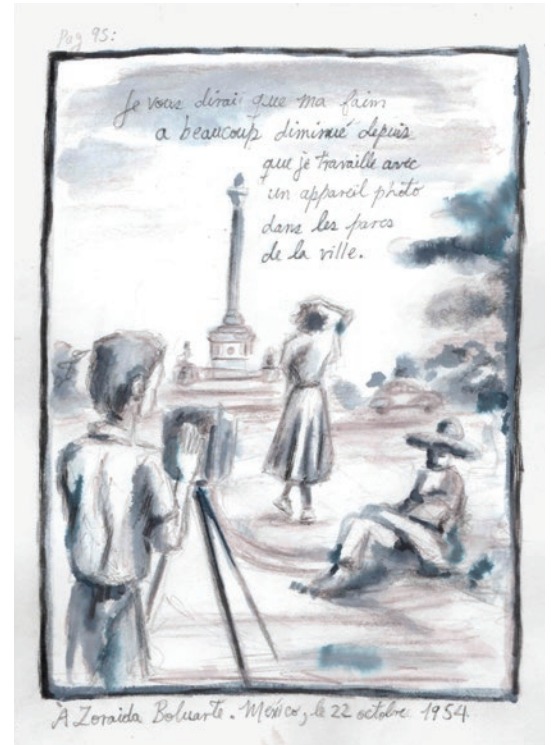 Pag 95:
Je vous dirai que ma faim
a beaucoup diminué depuis
que je travaille avec
un appareil photo
dans les parcs
de la ville.
À Zoraida Boluarte. México, le 22 octobre 1954.